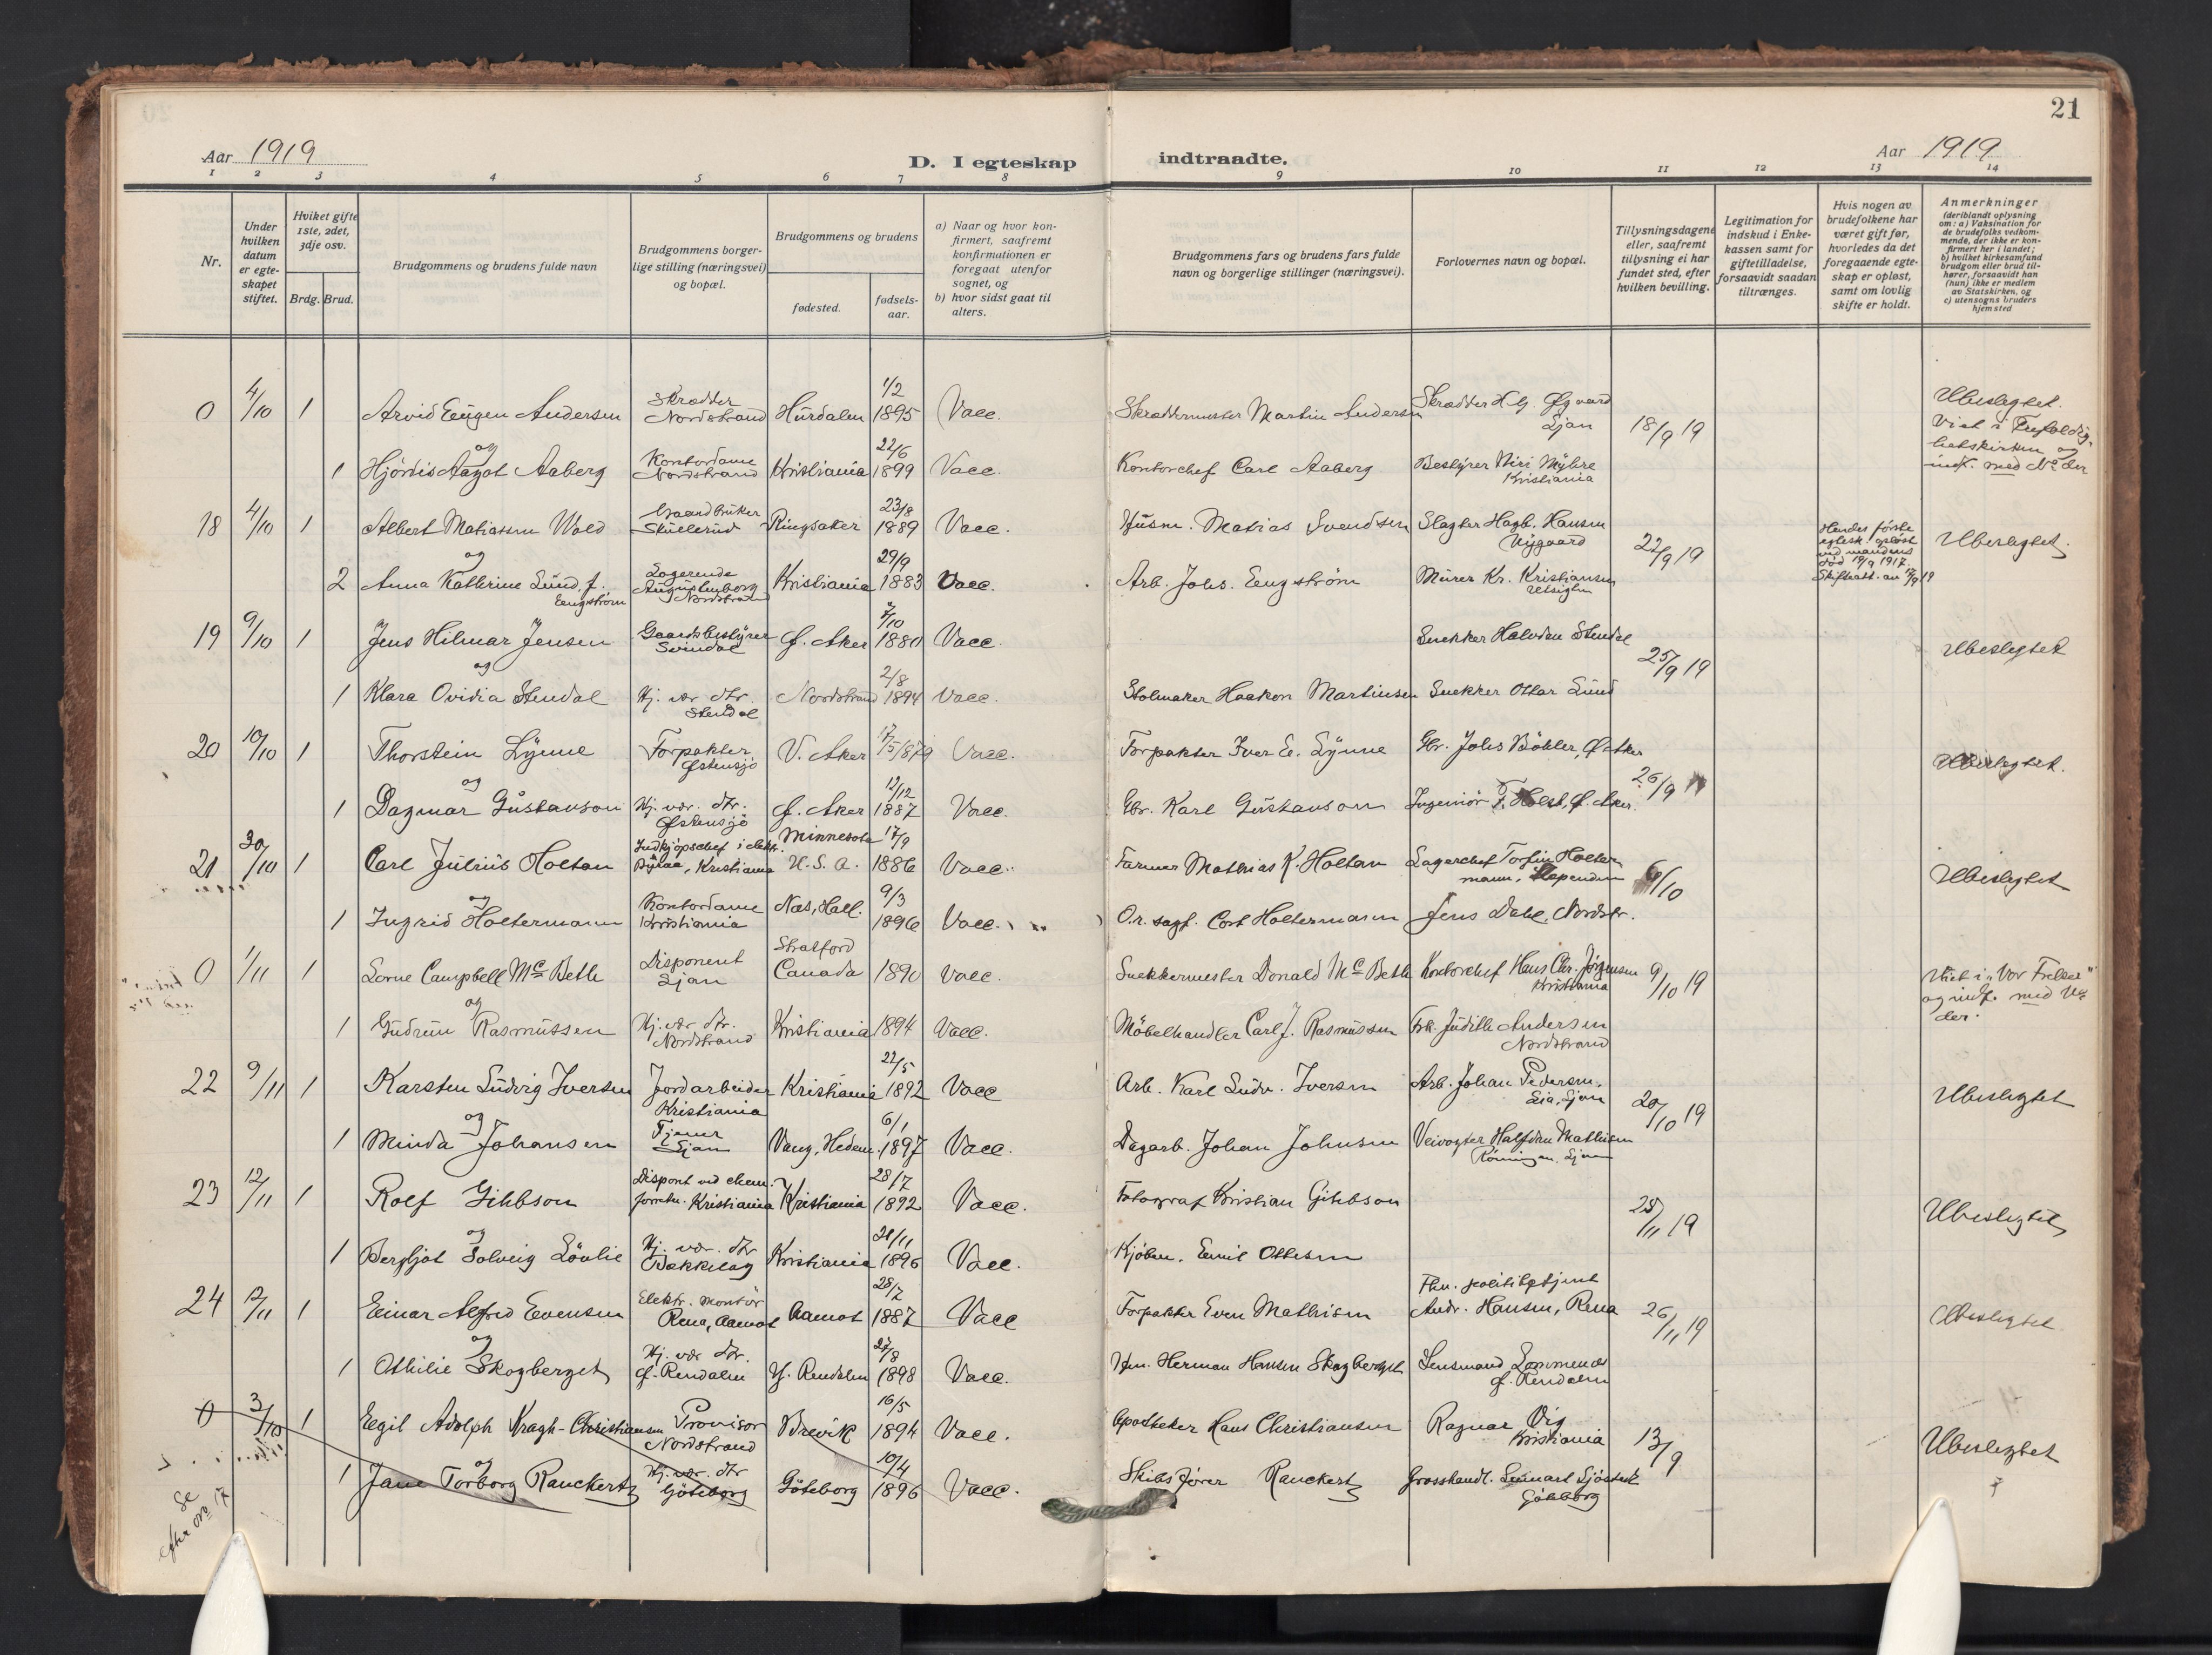 21
Aar 1919
D. I egteskap
indtraadte.
Aar 1919
1 2 3 4 5 6 7 8 9 10 11 12 13 14
Nr.
Under
hvilken
datum
er egte-
skapet
stiftet.
Hviket gifte
1ste, 2det,
3dje osv.
Brdg. Brud.
Brudgommens og brudens fulde navn
Brudgommens borger-
lige stilling (næringsvei)
og bopæl.
Brudgommens og brudens
fødested.
fødsels-
aar.
a) Naar og hvor kon-
firmert, saafremt
konfirmationen er
foregaat utenfor
sognet, og
b) hvor sidst gaat til
alters.
Brudgommens fars og brudens fars fulde
navn og borgerlige stillinger (næringsvei).
Forlovernes navn og bopæl.
Tillysningsdagene
eller, saafremt
tillysning ei har
fundet sted, efter
hvilken bevilling.
Legitimation for
indskud i Enke-
kassen samt for
giftetilladelse,
forsaavidt saadan
tiltrænges.
Hvis nogen av
brudefolkene har
været gift før,
hvorledes da det
foregaaende egte-
skap er opløst,
samt om lovlig
skifte er holdt.
Anmerkninger
(deriblandt oplysning
om: a) Vaksination for
de brudefolks vedkom-
mende, der ikke er kon-
firmert her i landet;
b) hvilket kirkesamfund
brudgom eller brud til-
hører, forsaavidt han
(hun) ikke er medlem
av Statskirken, og
c) utensogns bruders
hjemsted
0 4/10 1 Arvid Eugen Andersen Skrædder Nordstrand Hurdalen 1/2 1895 Vacc. Skræddermester Martin Andersen Skrædder Ljan 18/9 19 Ubeslegtet.
og
1 Hjördis Aagot Aaberg Kontordame Nordstrand Kristiania 22/6 1899 Vacc. Kontorchef Carl Aaberg Bestyrer Myhre Kristiania
Viet i Trefoldig-
hetskirken og
indf. med No der
18 4/10 1 Albert Matiassen Wold Gaardbruker Skullerud Ringsaker 23/8 1889 Vacc. Husm. Matias Svendsen Slagter Hagb. Hansen Nygaard 22/9 19 Ubeslegtet.
og
2 Anna Kathrine Lund, f. Engström Logerende Augustenborg Nordstrand Kristiania 29/9 1883 Vacc. Arb. Johs. Engström Murer Kr. Kristiansen
Hendes første
egtesk. opløst
ved mandens
död 19/9 1917.
Skifteatt. av
19 9/10 1 Jens Hilmar Jensen Gaardsbestyrer Svindal Ø. Aker 7/10 1880 Vacc. Snekker Halvdan Stendal 25/9 19 Ubeslegtet
og
1 Klara Ovidia Stendal Hj. vær. dtr. Stendal Nordstrand 2/8 1894 Vacc. Stolmaker Haakon Martinsen Snekker Ottar Lund
20 10/10 1 Thorstein Lynne Forpakter Østensjö V. Aker 17/5 1879 Vacc. Forpakter Iver E. Lynne Gbr. Johs Böhler, Ø. Aker 26/9 Ubeslegtet.
og
1 Dagmar Gustavson Hj. vær. dtr. Østensjö Ø. Aker 12/12 1887 Vacc. Gbr. Karl Gustavson Ingeniör T. Holst, Ø. Aker.
21 30/10 1 Carl Julius Holtan Indkjöpschef i elektr. Byraa, Kristiania Minnesota U.S.A. 17/9 1886 Vacc. Farmer Mathias K. Holtan Lagerchef Torfin Holter- mann, Slependen 6/10 Ubeslegtet
og
1 Ingrid Holtermann Kontordame Kristiania Næs, Hall. 9/3 1896 Vacc. O.r. sagf. Cort Holtermann Jens Dahl, Nordstr.
0 1/11 1 Lorne Campbell Mc Beth Disponent Ljan Stratford Canada 1890 Vacc. Snekkermester Donald Mc Beth Kontorchef Hans Chr. Jörgensen Kristiania 9/10 19
og
1 Gudrun Rasmussen Hj. vær. dtr. Nordstrand Kristiania 1894 Vacc. Möbelhandler Carl J. Rasmussen Frk. Judith Andersen Nordstrand
Viet i "Vor Frelser"
og indf. med No
der.
22 9/11 1 Karsten Ludvig Iversen Jordarbeider Kristiania Kristiania 22/5 1892 Vacc Arb. Karl Ludv. Iversen Arb. Johan Pedersen, Lia, Ljan 20/10 19 Ubeslegtet
og
1 Minda Johansen Tjener Ljan Vang, Hedem. 6/1 1897 Vacc. Dagarb. Johan Johnsen Veivogter Halfdan Mathisen Rönningen, Ljan
23 12/11 1 Rolf Gihbson Dispont ved chem. forretn. Kristiania Kristiania 28/7 1892 Vacc. Fotograf Kristian Gihbson 25/11 19 Ubeslegtet
og
1 Bergljot Solveig Lövlie Hj. vær. dtr Bækkelag Kristiania 21/11 1896 Vacc. Kjöbm. Emil Ottesen
24 12/11 1 Einar Alfred Evensen Elektr. montör Rena, Aamot Aamot 28/7 1887 Vacc Forpakter Even Mathisen Fhv. politibetjent Andr. Hansen, Rena 26/11 19 Ubeslegtet
og
1 Othilie Skogberget Hj. vær dtr. Ø. Rendalen Y. Rendalen 27/8 1898 Vacc. Hm. Herman Hansen Skogberget Lensmand Lommendal Ø. Rendalen
0 3/10 1 Egil Adolph Kragh-Christiansen Provisor Nordstrand Brevik 16/5 1894 Vacc. Apotheker Hans Christiansen Ragnar Vig Kristiania 13/9 Ubeslegtet
og
1 Jane Torborg Ranckert Hj. vær. dtr Göteborg Göteborg 10/4 1896 Vacc. Skibsförer Ranckert Grosshandl. Lennart Sjöstedt Göteborg
Se
efter No 17